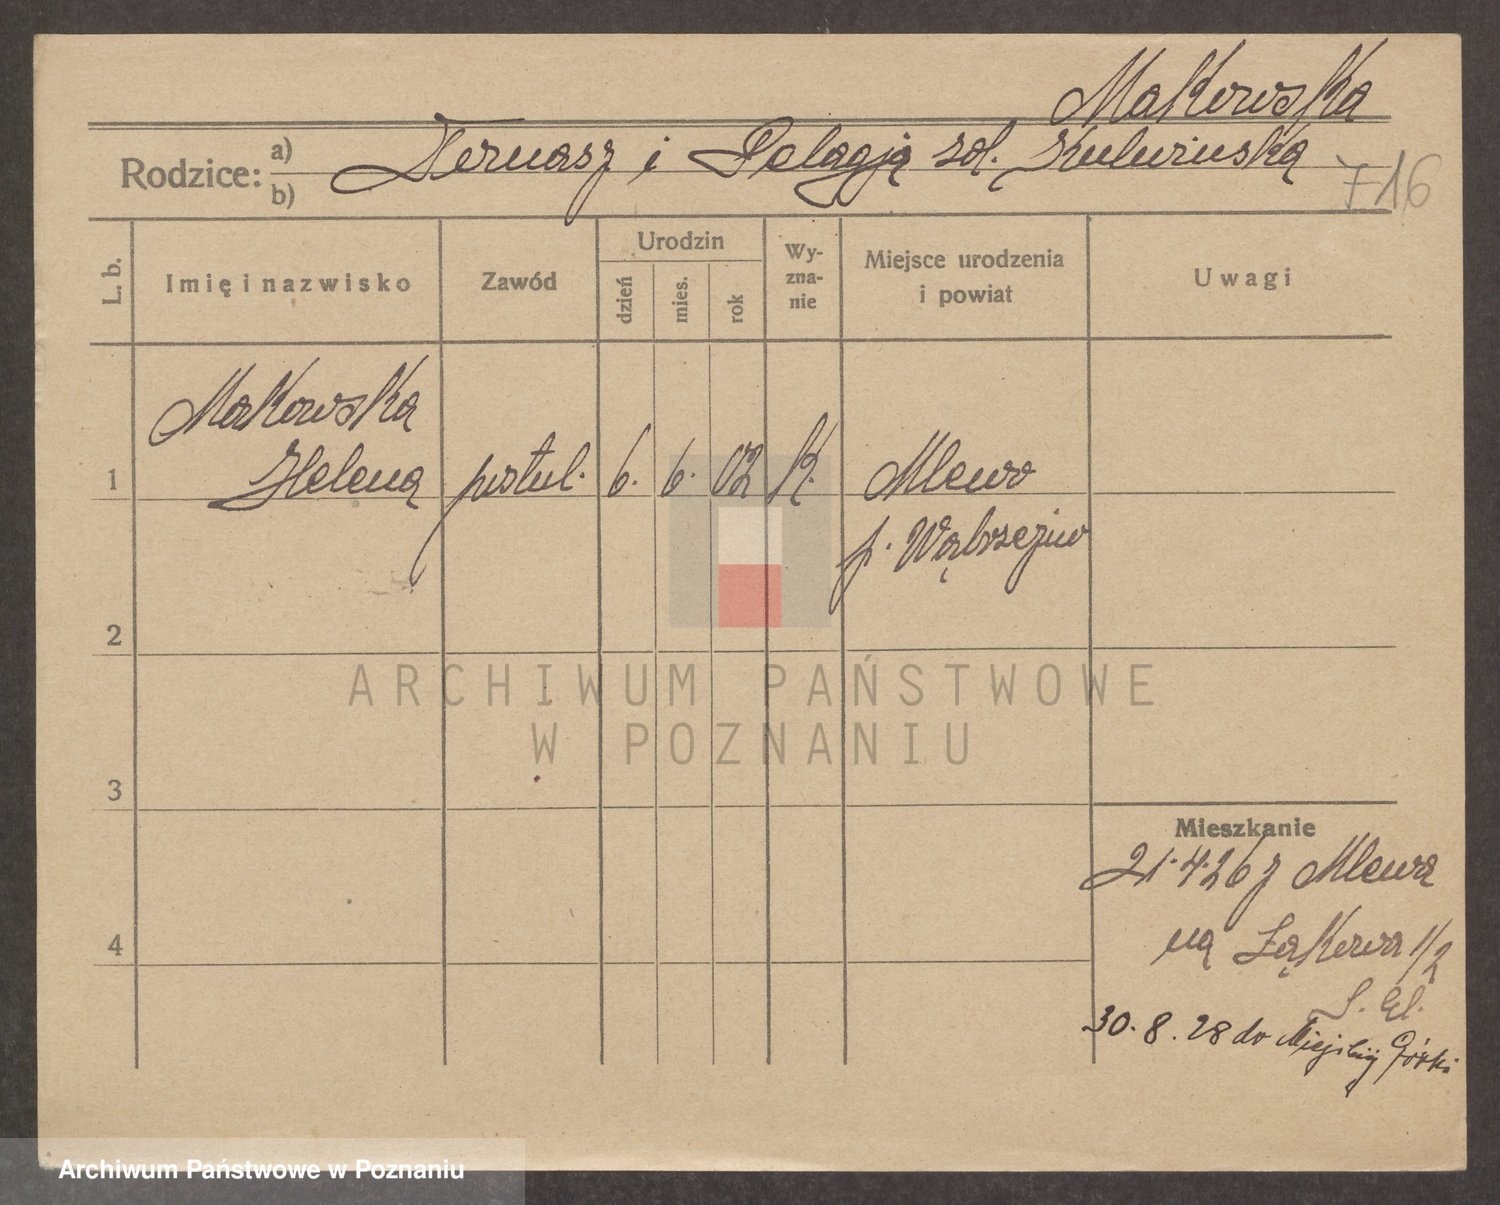 Makowska
Rodzice: a) b) i Pelagją
L. b.
Imię i nazwisko
Zawód
Urodzin
dzień
mies.
rok
Wy-
zna-
nie
Miejsce urodzenia
i powiat
Uwagi
Makowska
1 Helena postul. 6. 6. 02 K. Mlewo
p. Wąbrzeźno
2
3
4
Mieszkanie
21.4.26 z Mlewa
na Łąkowa 1/2
S. El.
30.8.28 do Miejskiej Górki
716
ARCHIWUM PAŃSTWOWE
W POZNANIU
Archiwum Państwowe w Poznaniu